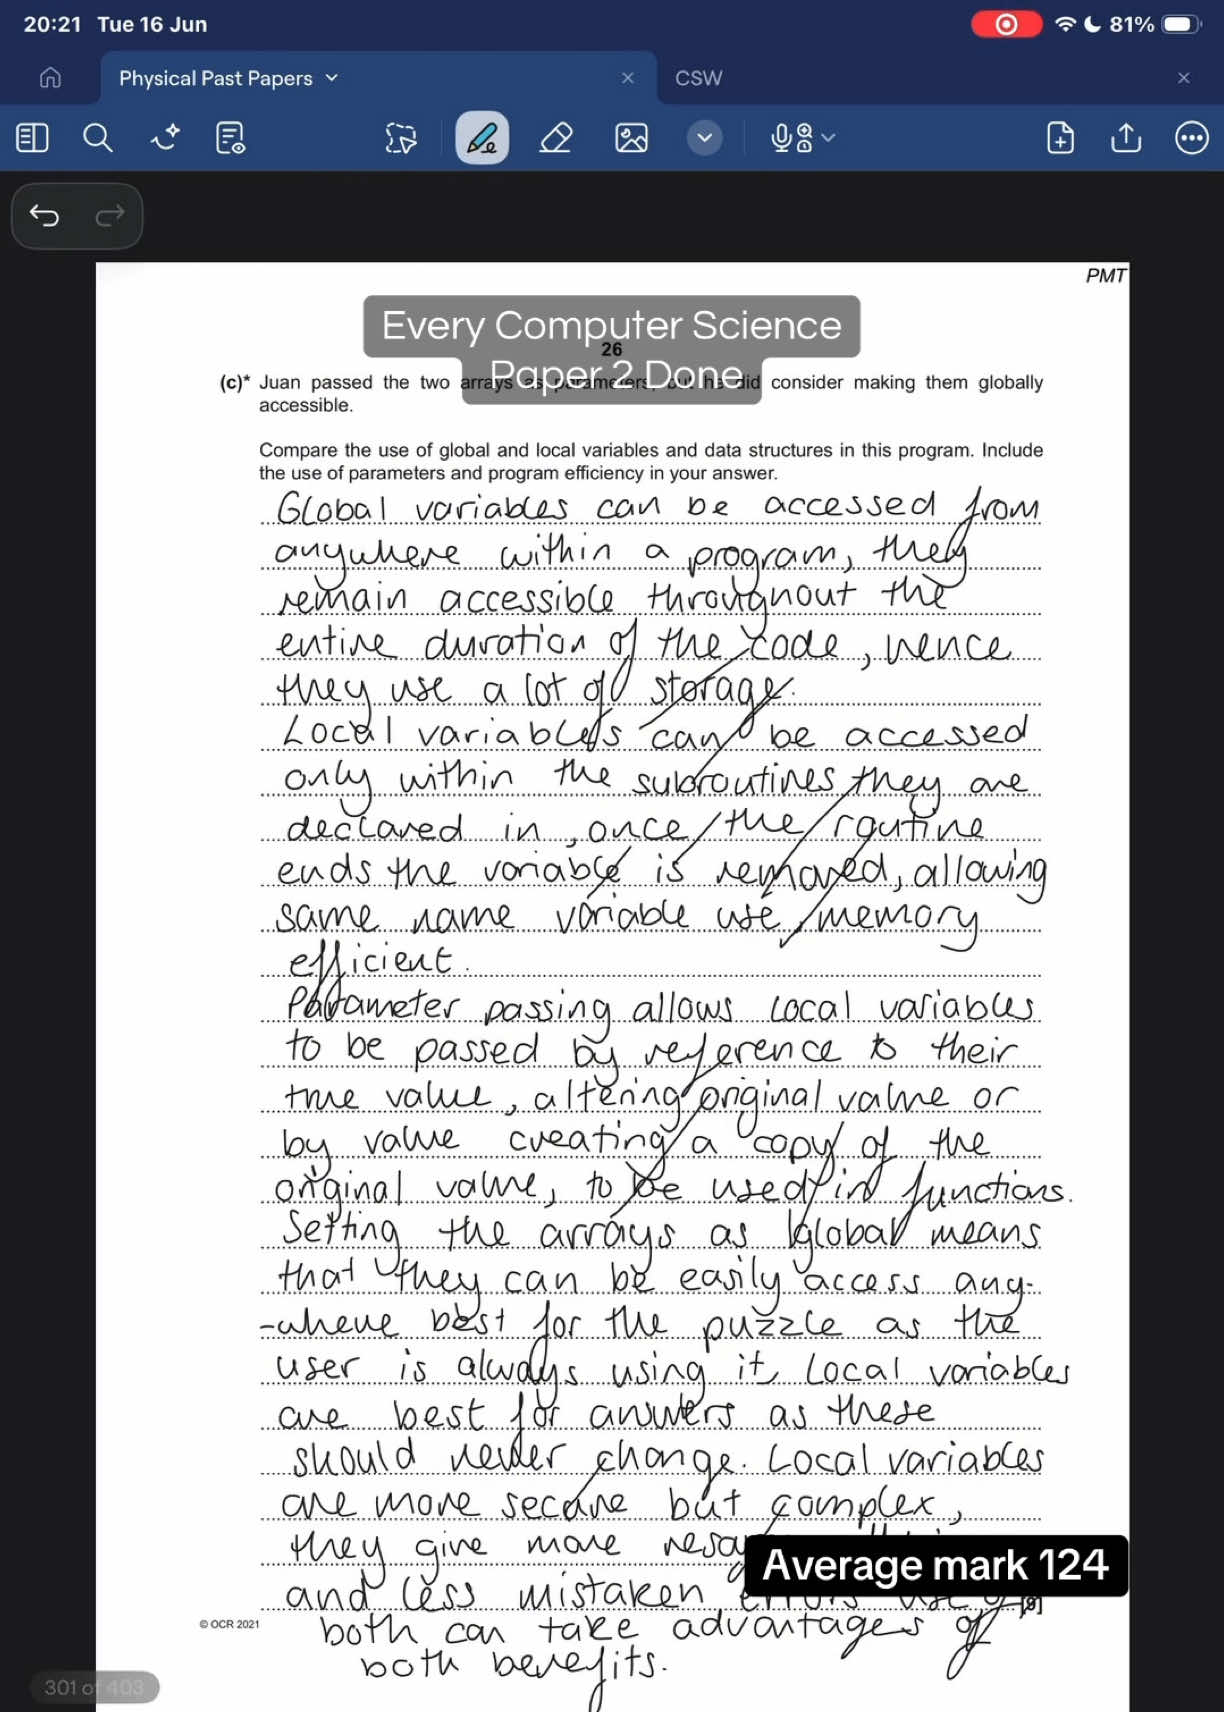 20:21 Tue 16 Jun
81%
Physical Past Papers
CSW
PMT
Every Computer Science
Paper 2 Done
26
(c)* Juan passed the two arrays as parameters, but he did consider making them globally
accessible.
Compare the use of global and local variables and data structures in this program. Include
the use of parameters and program efficiency in your answer.
Global variables can be accessed from
anywhere within a program, they
remain accessible throughout the
entire duration of the code, hence
they use a lot of storage.
Local variables can be accessed
only within the subroutines they are
declared in, once the routine
ends the variable is removed, allowing
same name variable use, memory
efficient.
Parameter passing allows local variables
to be passed by reference to their
true value, altering original value or
by value creating a copy of the
original value, to be used in functions.
Setting the arrays as global means
that they can be easily access any-
-where best for the puzzle as the
user is always using it, Local variables
are best for answers as these
should never change. Local variables
are more secure but complex,
they give more
and less mistaken errors use
[9]
both can take advantages of
both benefits.
Average mark 124
© OCR 2021
301 of 403